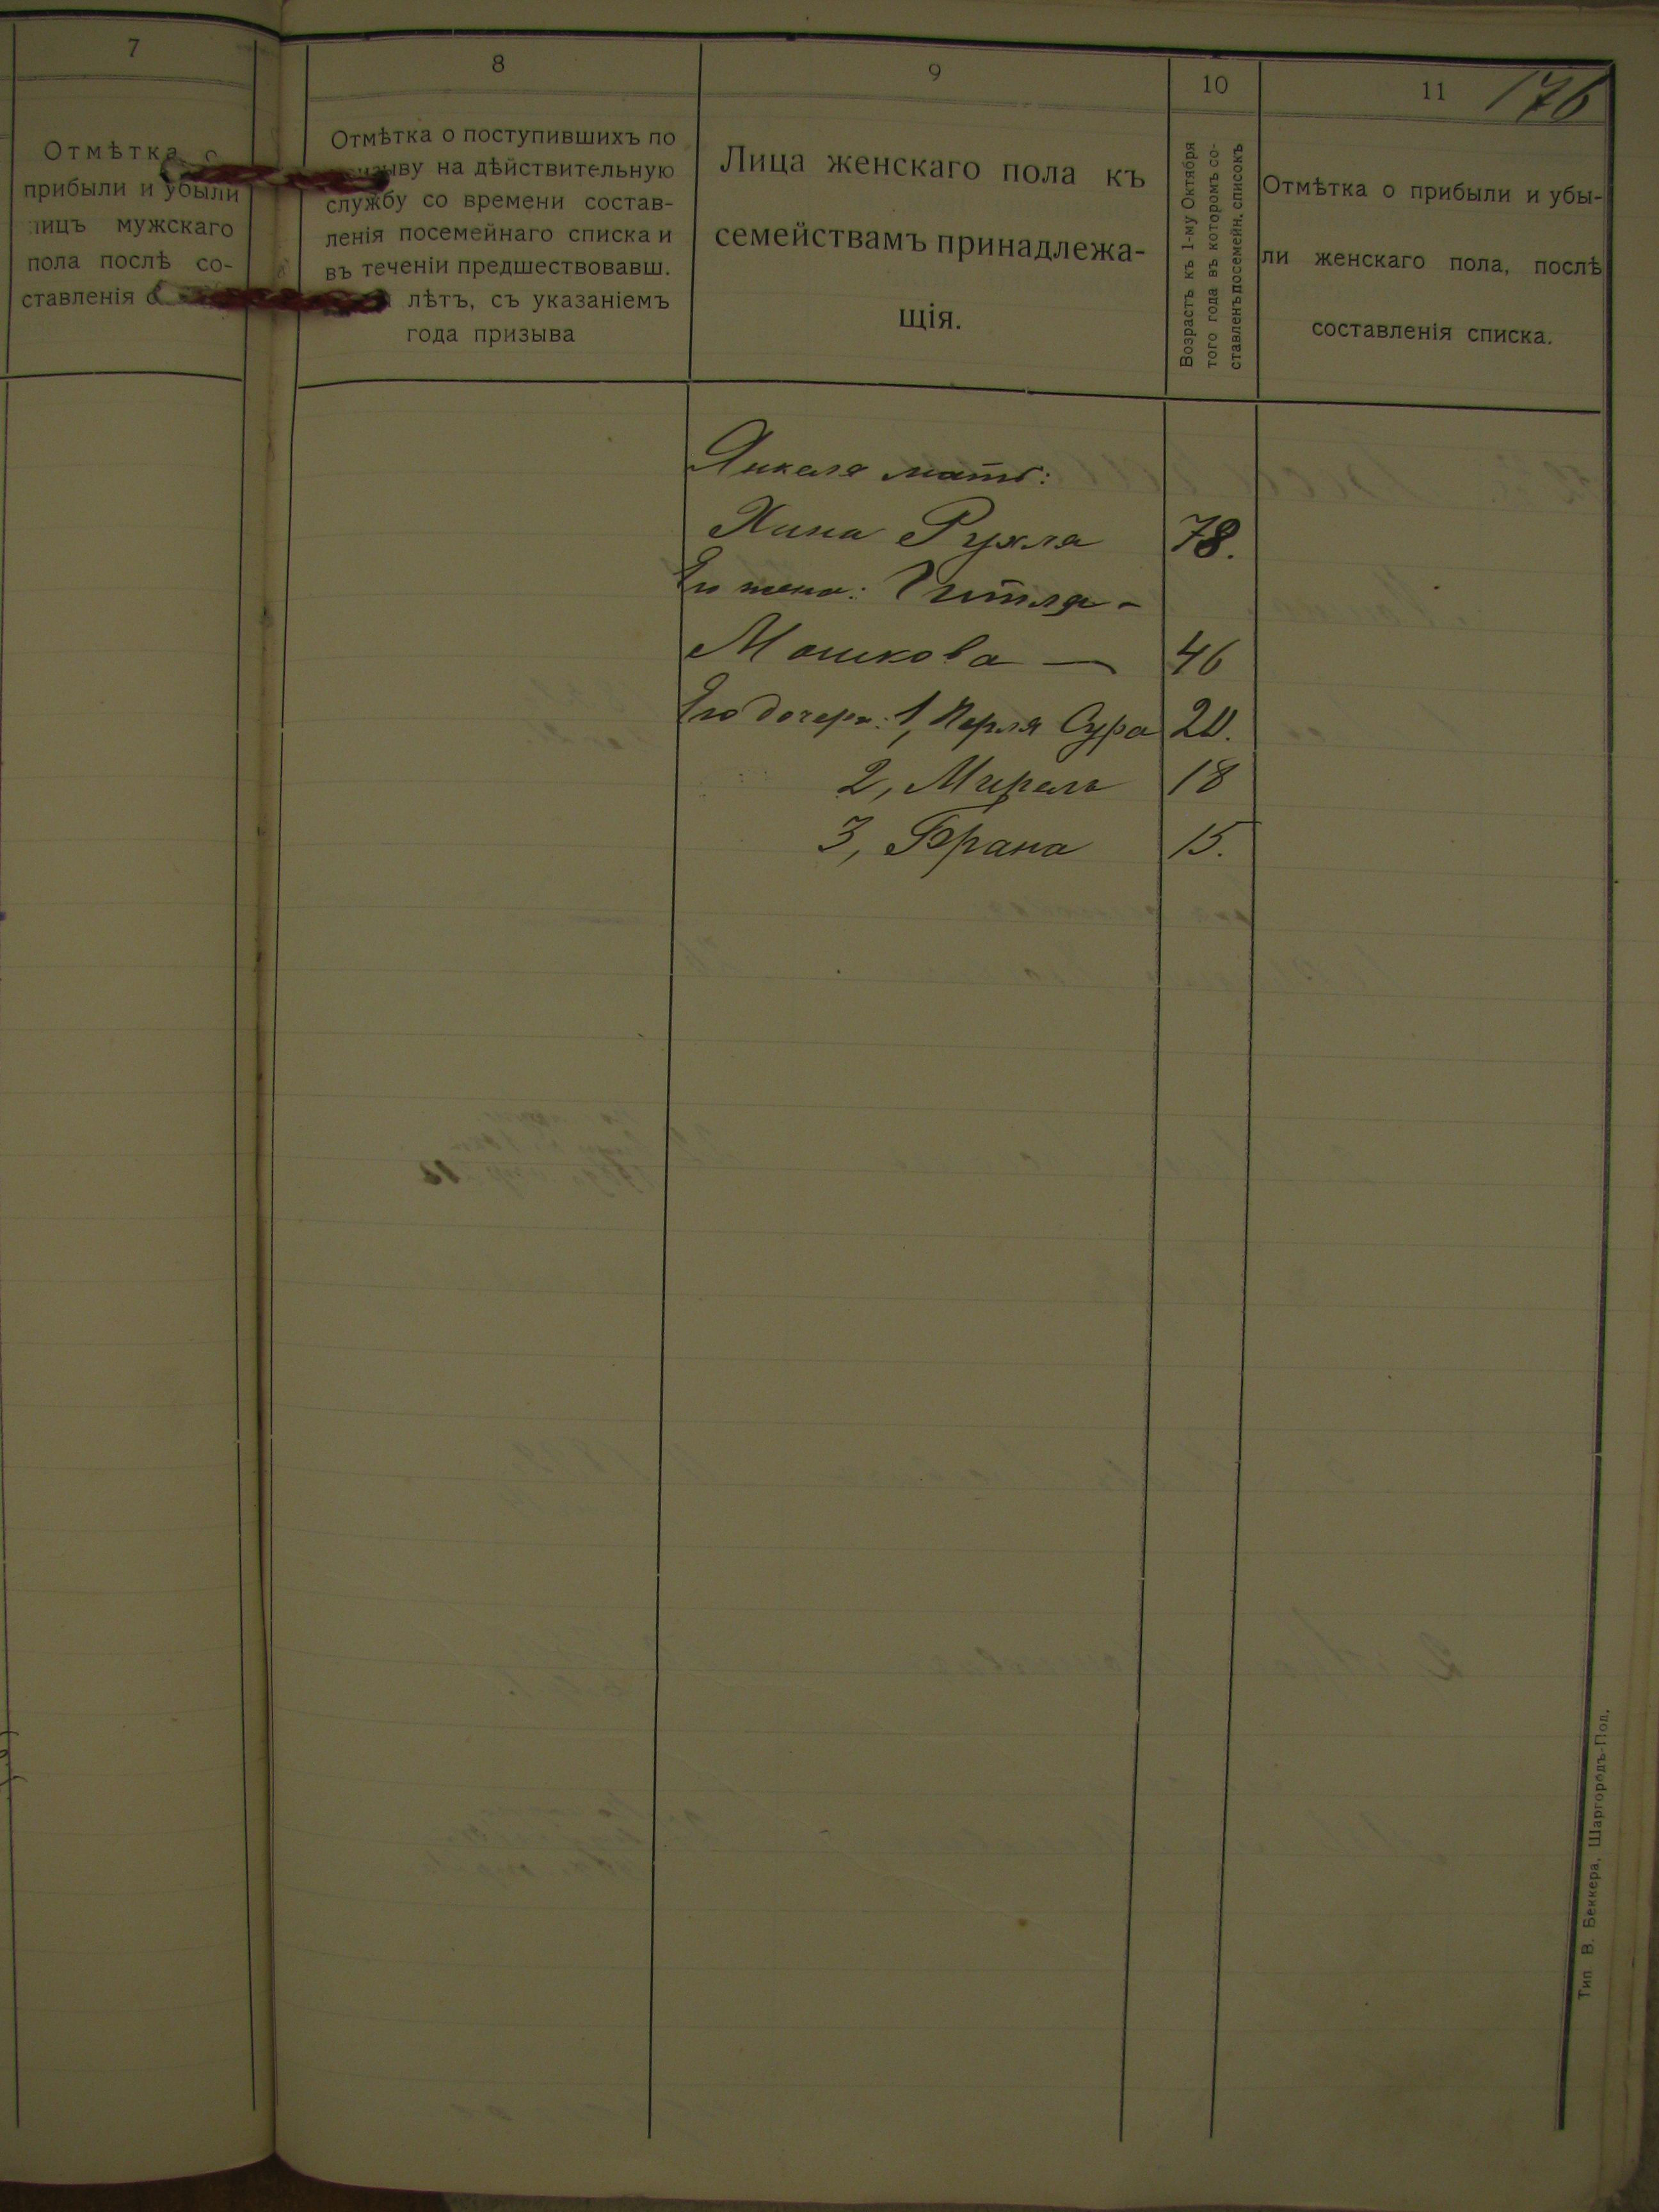 7
Отмѣтка о
прибыли и убыли
лицъ мужскаго
пола послѣ со-
ставленія
8
Отмѣтка о поступившихъ по
призыву на дѣйствительную
службу со времени состав-
ленія посемейнаго списка и
въ теченіи предшествовавш.
лѣтъ, съ указаніемъ
года призыва
9
Лица женскаго пола къ
семействамъ принадлежа-
щія.
10
Возрастъ къ 1-му Октября
того года въ которомъ со-
ставленъ посемейн. списокъ
11
176
Отмѣтка о прибыли и убы-
ли женскаго пола, послѣ
составленія списка.
Янкеля мать:
Хина Рухля 78.
Его жена: Гитля -
Мошкова — 46
Его дочери: 1, Перля Сура 20.
2, Мирель 18
3, Брана 15.
Тип. В. Беккера, Шаргородъ-Под.